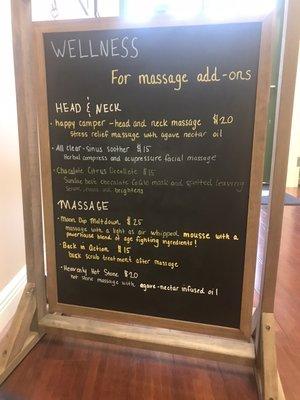 WELLNESS
For massage add-ons
HEAD & NECK
• happy camper - head and neck massage $20
stress relief massage with agave nectar oil
• All clear - sinus soother $15
Herbal compress and acupressure facial massage
• Chocolate Citrus Decollete $15
Sundae best chocolate facial mask and
brightens
MASSAGE
• Moon Dip Meltdown $25
massage with a light as air whipped mousse with a
powerhouse blend of age fighting ingredients!
• Back in Action $15
back scrub treatment after massage
• Heavenly Hot Stone $20
hot stone massage with agave-nectar infused oil